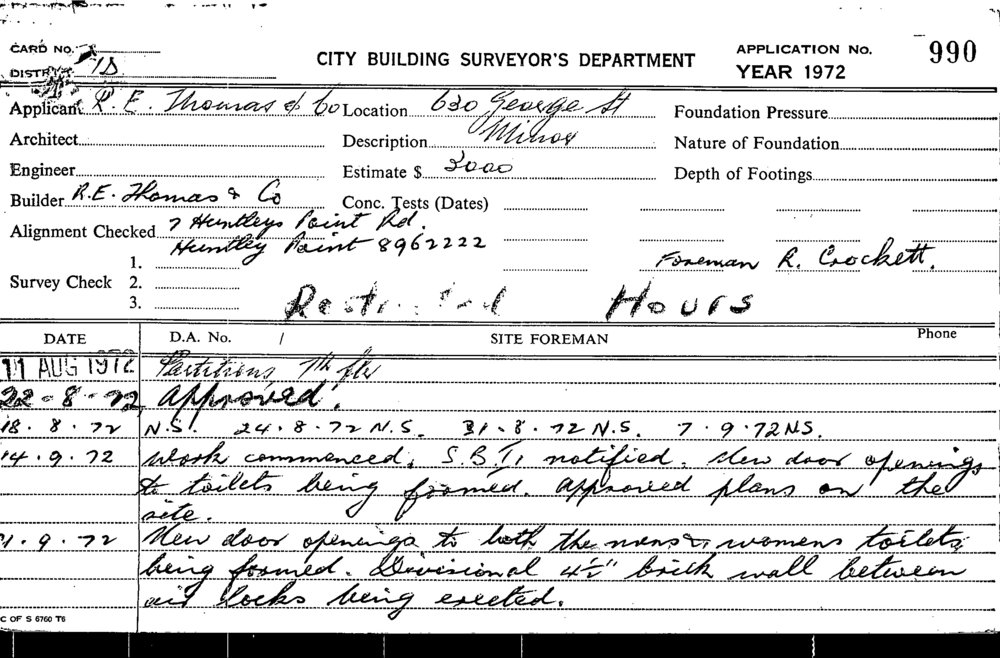 CARD No.
CITY BUILDING SURVEYOR'S DEPARTMENT
APPLICATION No. 990
DISTRICT
YEAR 1972
Applicant R. E. Thomas & Co Location 630 George St Foundation Pressure
Architect Description Minor Nature of Foundation
Engineer Estimate $ 3000 Depth of Footings
Builder R.E. Thomas & Co Conc. Tests (Dates)
Alignment Checked 7 Huntleys Point Rd.
Huntley Point 8962222
1. Foreman R. Crockett.
Survey Check 2.
3. Restricted Hours
DATE D.A. No. / SITE FOREMAN Phone
11 AUG 1972 Partitions, 7th flr
22-8-72 Approved.
18.8.72 N.S. 24-8-72 N.S. 31-8-72 N.S. 7.9.72 NS.
14.9.72 Work commenced. notified. New door openings
to toilets being formed. Approved plans on the
site.
1.9.72 New door openings to both the mens & womens toilets
being formed. Divisional 4½" brick wall between
air locks being erected.
C OF S 6760 T6